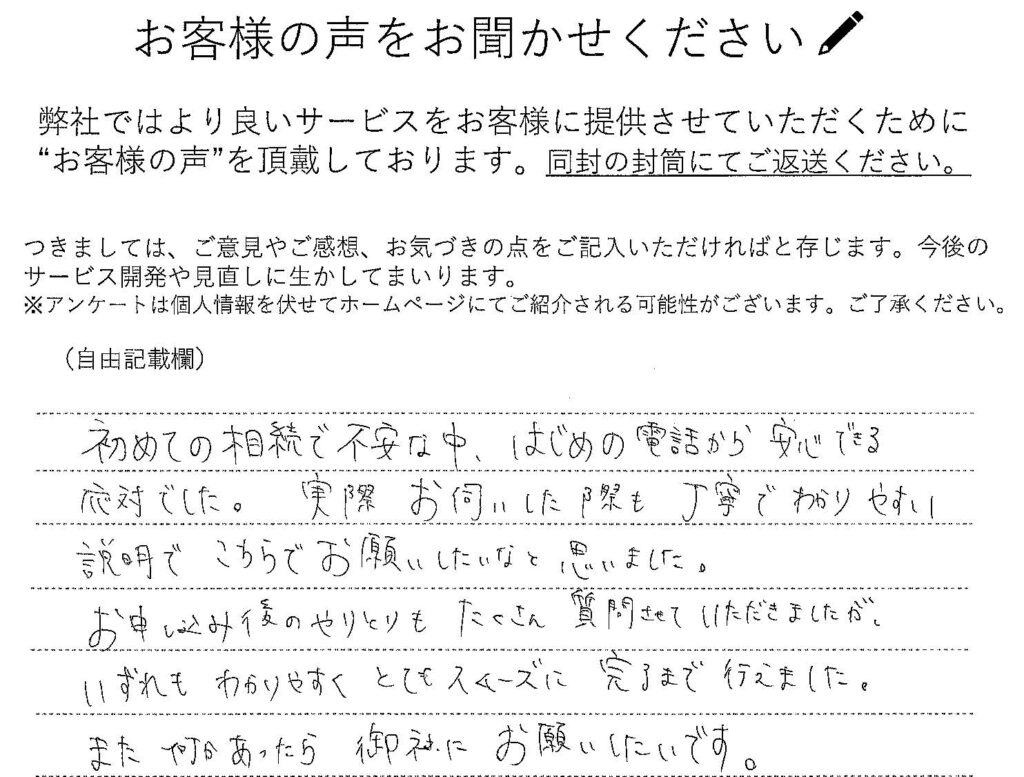 お客様の声をお聞かせください
弊社ではより良いサービスをお客様に提供させていただくために
“お客様の声”を頂戴しております。同封の封筒にてご返送ください。
つきましては、ご意見やご感想、お気づきの点をご記入いただければと存じます。今後の
サービス開発や見直しに生かしてまいります。
※アンケートは個人情報を伏せてホームページにてご紹介される可能性がございます。ご了承ください。
（自由記載欄）
初めての相続で不安な中、はじめの電話から安心できる
応対でした。実際お伺いした際も丁寧でわかりやすい
説明でこちらでお願いしたいなと思いました。
お申し込み後のやりとりもたくさん質問させていただきましたが、
いずれもわかりやすくとてもスムーズに完了まで行えました。
また何かあったら御社にお願いしたいです。